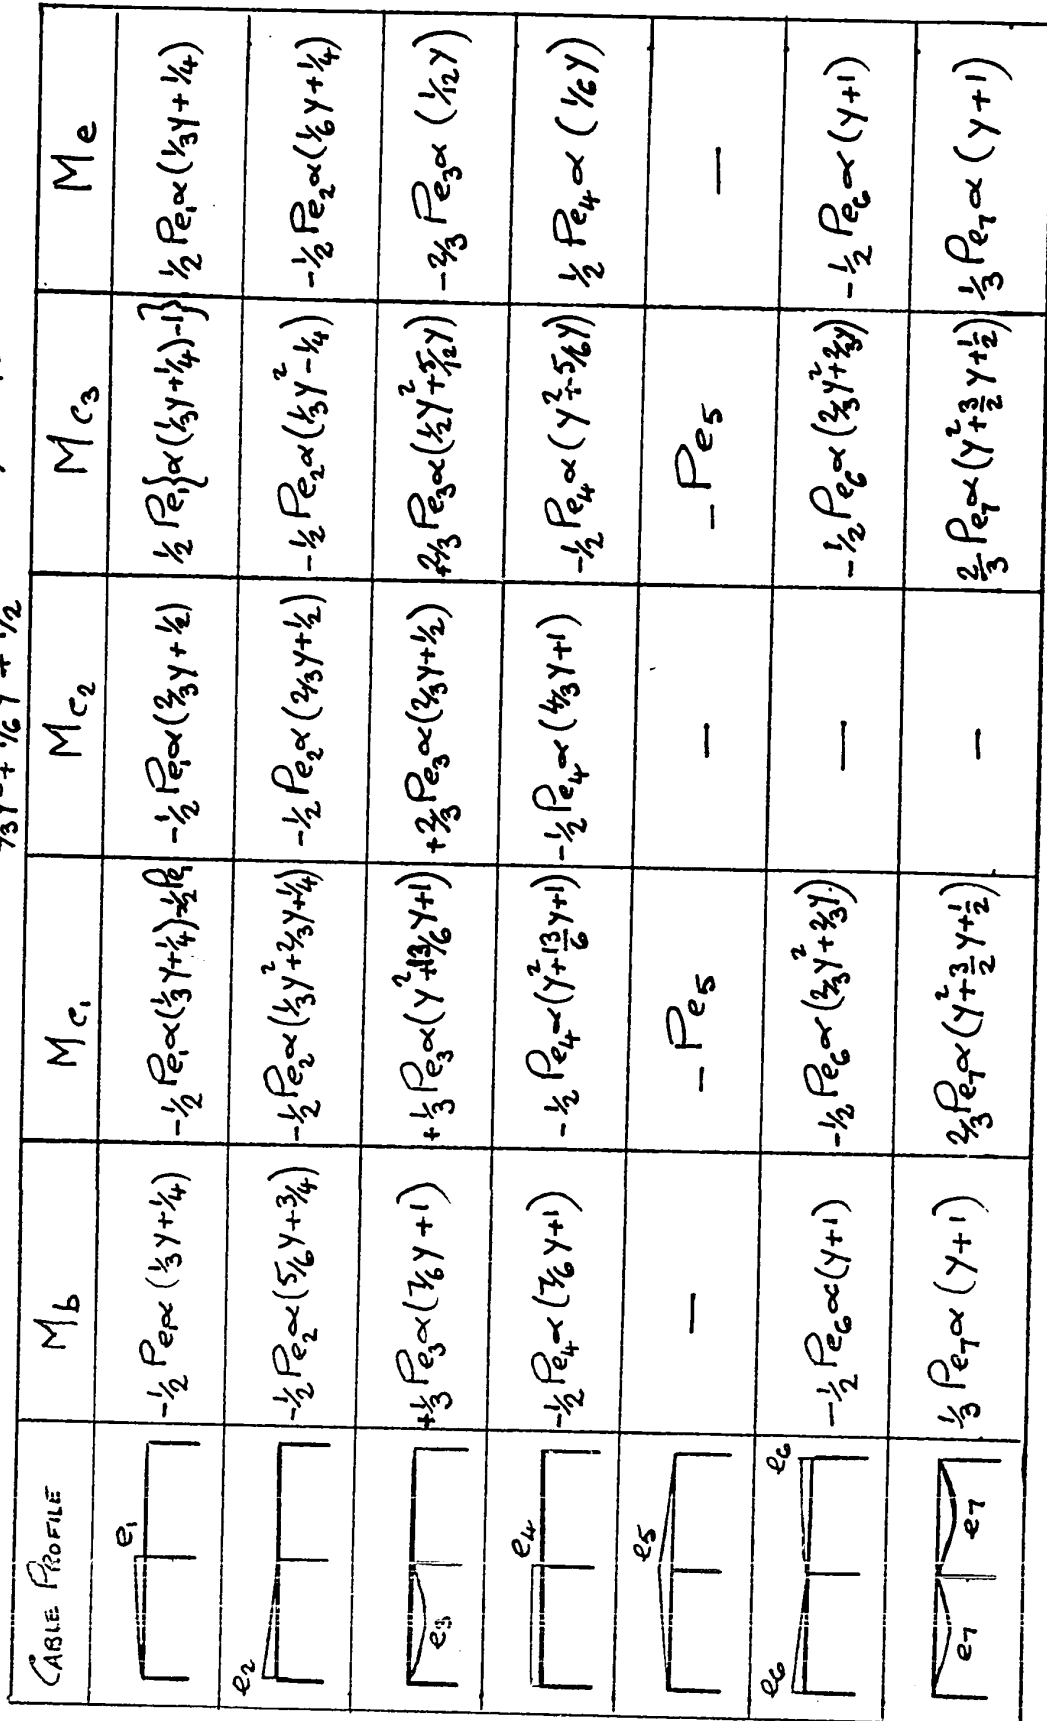 ⅓Y² + ⅙Y + ½
CABLE PROFILE Mb Mc₁ Mc₂ Mc₃ Me
e₁ -½Pe₁α(⅓Y+¼) -½Pe₁α(⅓Y+¼)-½Pe₁ -½Pe₁α(⅔Y+½) ½Pe₁{α(⅓Y+¼)-1} ½Pe₁α(⅓Y+¼)
e₂ -½Pe₂α(5/6Y+¾) -½Pe₂α(⅓Y²+⅔Y+¼) -½Pe₂α(⅔Y+½) -½Pe₂α(⅓Y²-¼) -½Pe₂α(⅙Y+¼)
e₃ +⅓Pe₃α(7/6Y+1) +⅓Pe₃α(Y²+13/6Y+1) +⅔Pe₃α(⅔Y+½) +⅔Pe₃α(½Y²+5/12Y) -⅔Pe₃α(1/12Y)
e₄ -½Pe₄α(7/6Y+1) -½Pe₄α(Y²+13/6Y+1) -½Pe₄α(4/3Y+1) -½Pe₄α(Y²+5/6Y) ½Pe₄α(⅙Y)
e₅ — -Pe₅ — -Pe₅ —
e₆ e₆ -½Pe₆α(Y+1) -½Pe₆α(⅔Y²+⅔Y) — -½Pe₆α(⅔Y²+⅔Y) -½Pe₆α(Y+1)
e₇ e₇ ⅓Pe₇α(Y+1) ⅔Pe₇α(Y²+3/2Y+½) — ⅔Pe₇α(Y²+3/2Y+½) ⅓Pe₇α(Y+1)